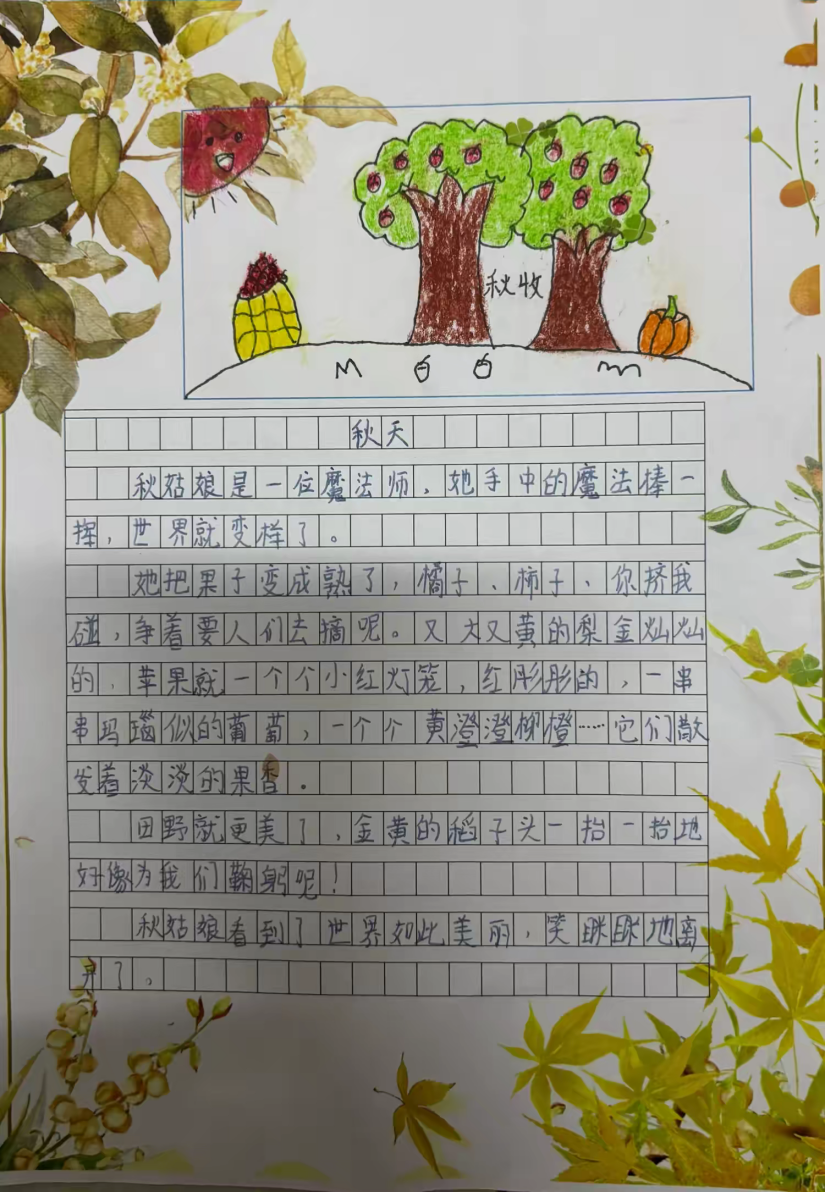 秋收
秋天
秋姑娘是一位魔法师，她手中的魔法棒一
挥，世界就变样了。
她把果子变成熟了，橘子、柿子、你挤我
碰，争着要人们去摘呢。又大又黄的梨金灿灿
的，苹果就一个个小红灯笼，红彤彤的，一串
串玛瑙似的葡萄，一个个黄澄澄柳橙……它们散
发着淡淡的果香。
田野就更美了，金黄的稻子头一抬一抬地
好像为我们鞠躬呢！
秋姑娘看到了世界如此美丽，笑眯眯地离
开了。